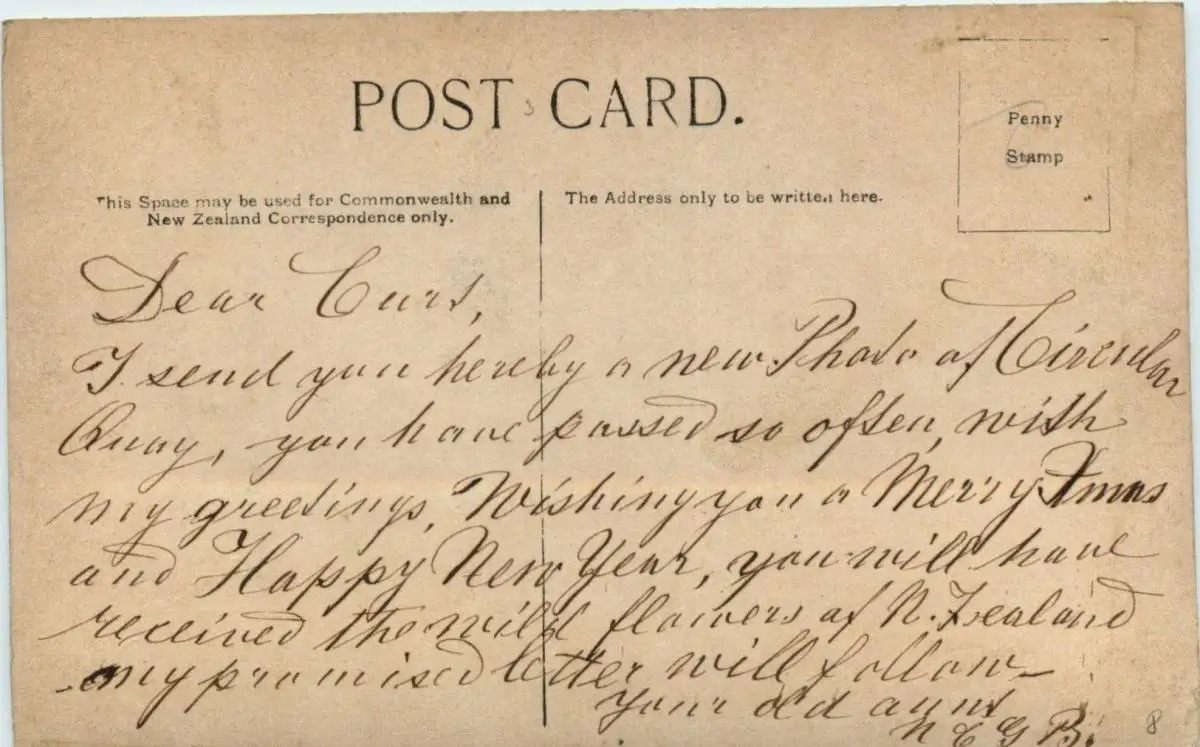 POST CARD.
Penny
Stamp
This Space may be used for Commonwealth and
New Zealand Correspondence only.
The Address only to be written here.
Dear Curt,
I send you hereby a new Photo of Circular
Quay, you have passed so often, with
my greetings, Wishing you a Merry Xmas
and Happy New Year, you will have
received the wild flowers of N. Zealand
my promised letter will follow
Your old aunt
8